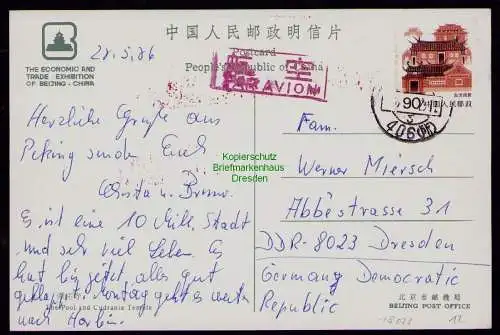 中国人民邮政明信片
Postcard
People's Republic of China
28.5.86
THE ECONOMIC AND
TRADE EXHIBITION
OF BEIJING - CHINA
PAR AVION
90
中国人民邮政
Herzliche Grüße aus
Peking senden Euch
Christa u. Bruno.
Es ist eine 10 Mill. Stadt
und sehr viel Leben. Es
hat bis jetzt alles gut
geklappt. Montag geht es weiter
nach Harbin.
The Pool and Cudrania Temple
Kopierschutz
Briefmarkenhaus
Dresden
Fam.
Werner Miersch
Abbestrasse 31
DDR-8023 Dresden
Germany Democratic
Republic
北京市邮政局
BEIJING POST OFFICE
12